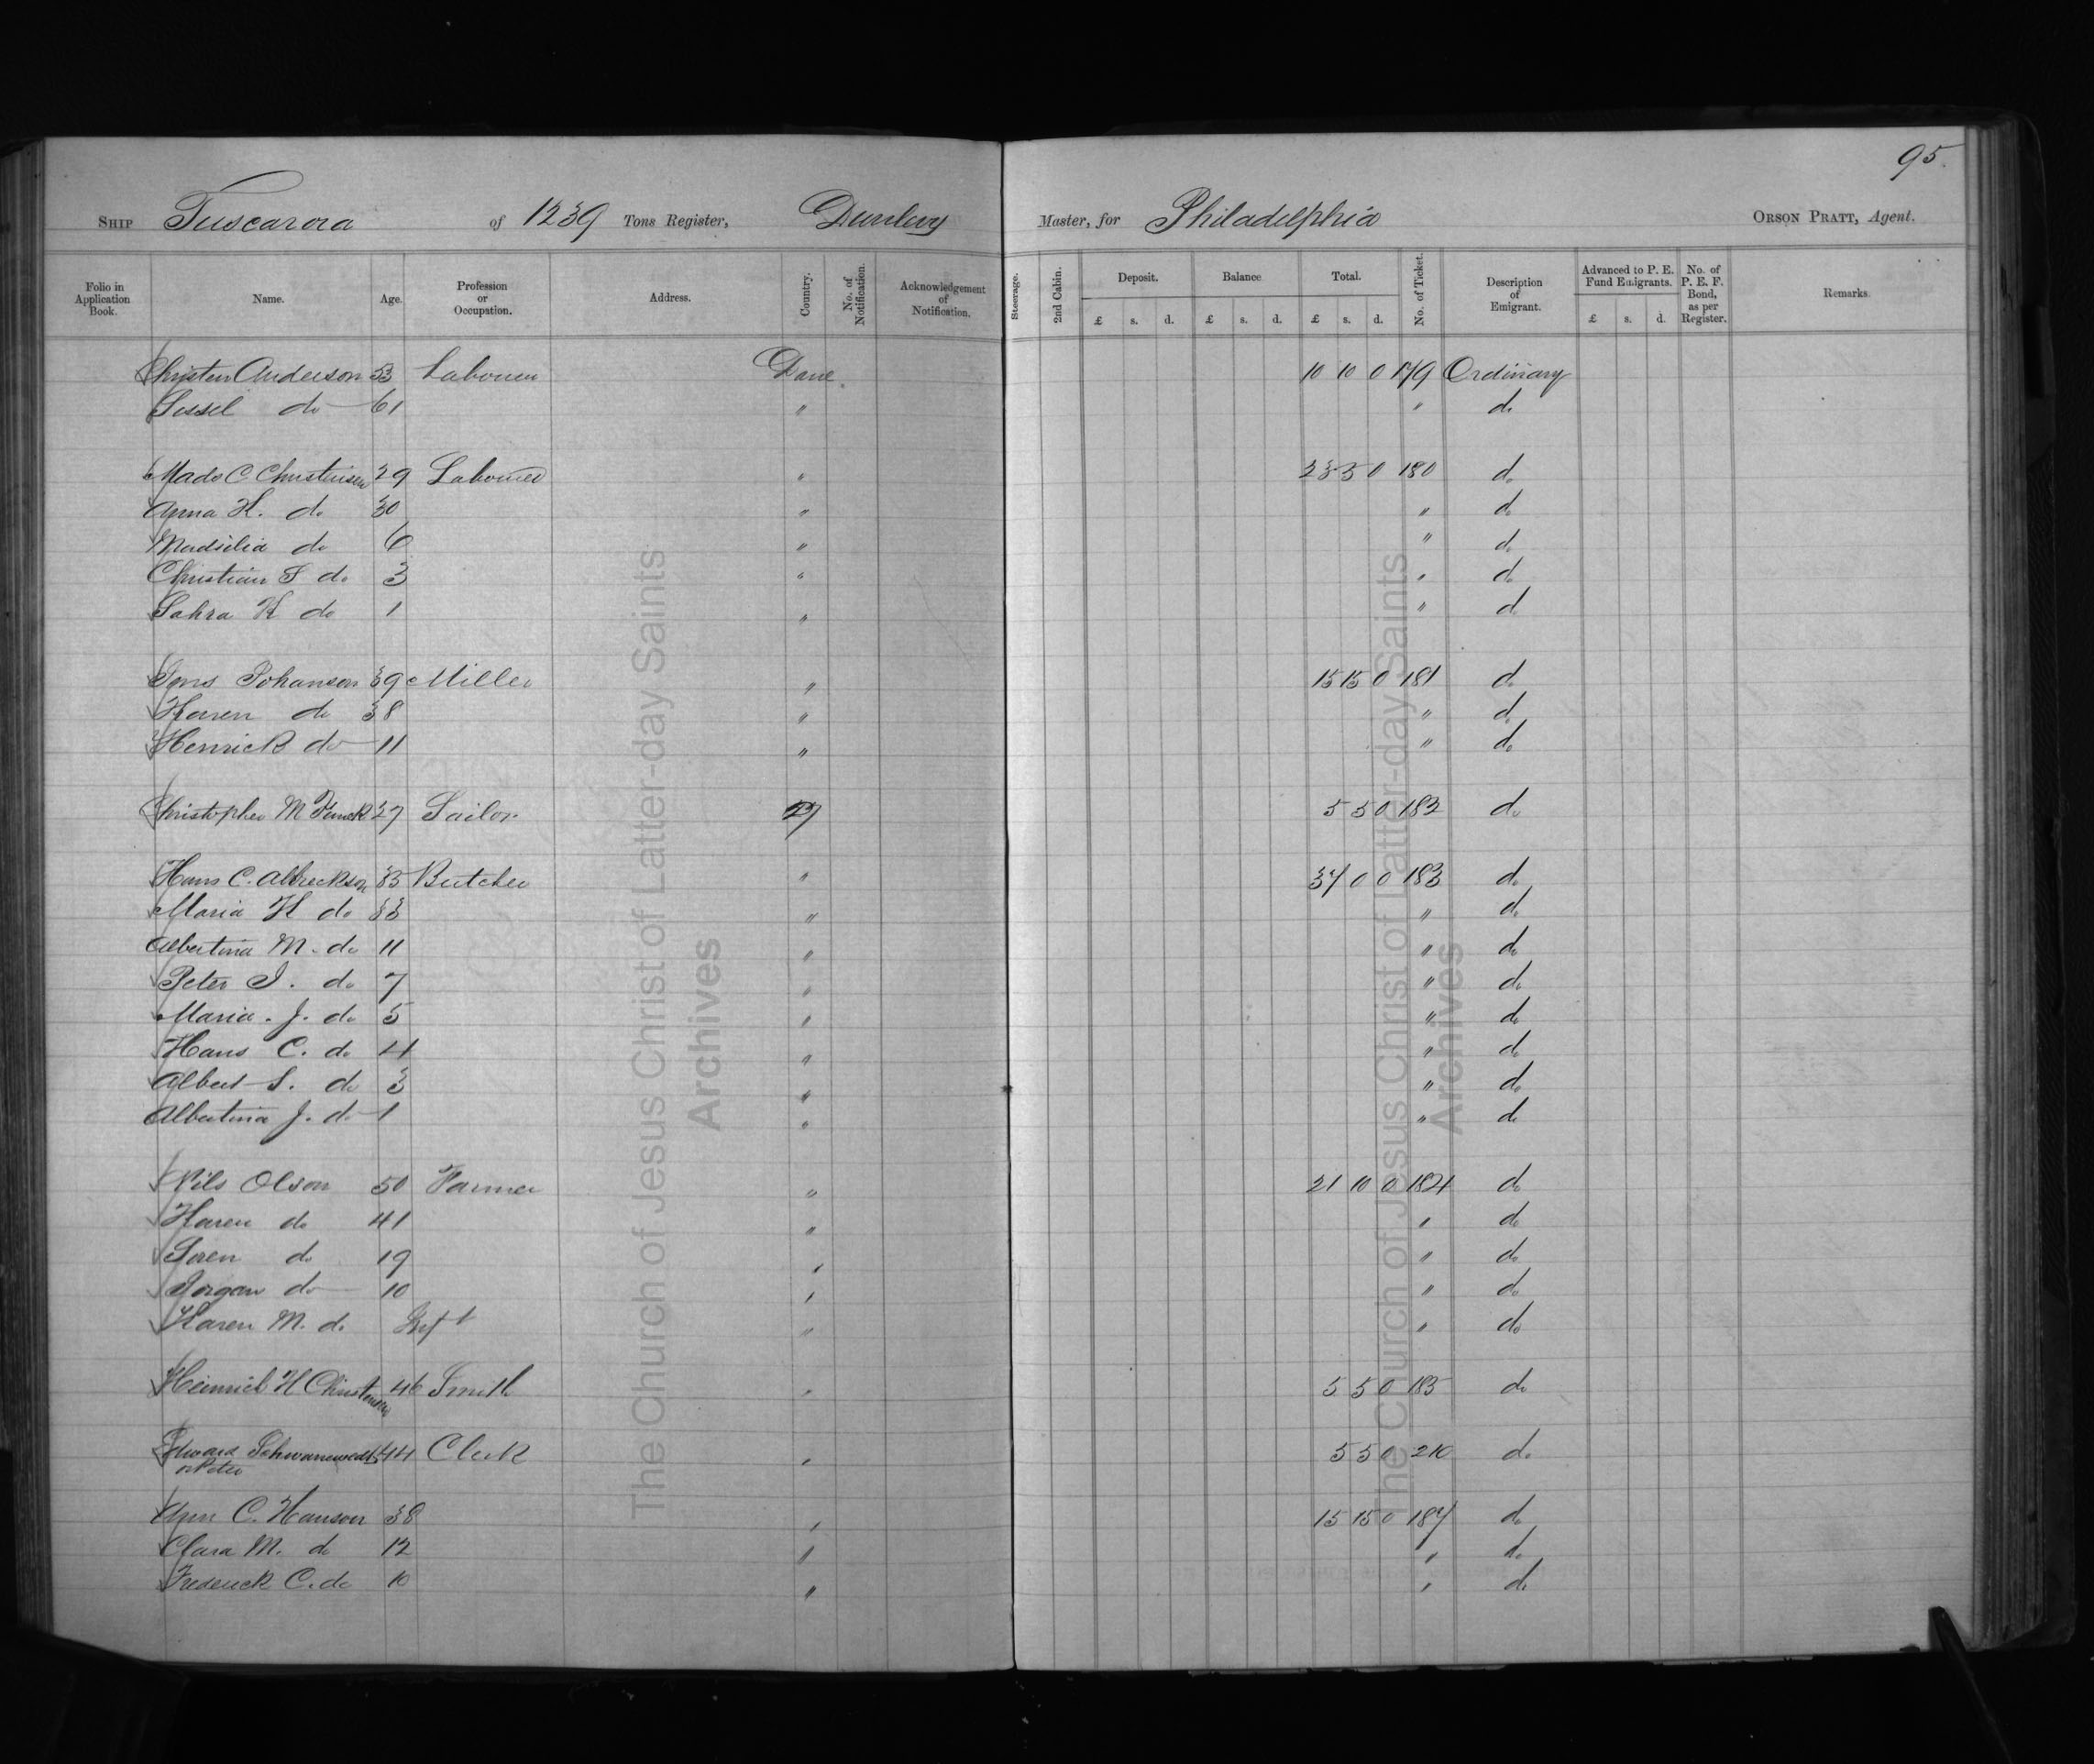 95.
SHIP Tuscarora of 1239 Tons Register, Dunlevy Master, for Philadelphia ORSON PRATT, Agent.
Folio in Application Book. Name. Age. Profession or Occupation. Address. Country. No. of Notification. Acknowledgement of Notification. Steerage. 2nd Cabin. Deposit. £ s. d. Balance £ s. d. Total. £ s. d. No. of Ticket. Description of Emigrant. Advanced to P. E. Fund Emigrants. £ s. d. No. of P. E. F. Bond, as per Register. Remarks.
Christen Anderson 53 Labourer Dane 10 10 0 179 Ordinary
Sissel do 61 " " do
Mads C. Christensen 29 Labourer " 180 do
Anna K. do 30 " " do
Madsilia do 6 " " do
Christian do 3 " " do
Sahra K do 1 " " do
Jens Johanson 39 Miller " 15 15 0 181 do
Karen do 38 " " do
Henrick do 11 " " do
Christopher M 37 Sailor " 5 5 0 182 do
Hans C. Albreckson 33 Butcher " 37 0 0 183 do
Maria K do 33 " " do
Albertina M. do 11 " " do
Peter J. do 7 " " do
Maria. J. do 5 " " do
Hans C. do 4 " " do
Albert S. do 3 " " do
Albertina J. do 1 " " do
Nils Olson 50 Farmer " 21 10 0 184 do
Karen do 41 " " do
Soren do 19 " " do
Jorgan do 10 " " do
Karen M. do Inft " " do
Heinrich H Christensen 46 Smith " 5 5 0 185 do
Edward 44 Clerk " 5 5 0 210 do
or Peter
Ann C. Hanson 38 " 15 15 0 187 do
Clara M. do 12 " " do
Frederick C. do 10 " " do
The Church of Jesus Christ of Latter-day Saints
Archives
The Church of Jesus Christ of Latter-day Saints
Archives